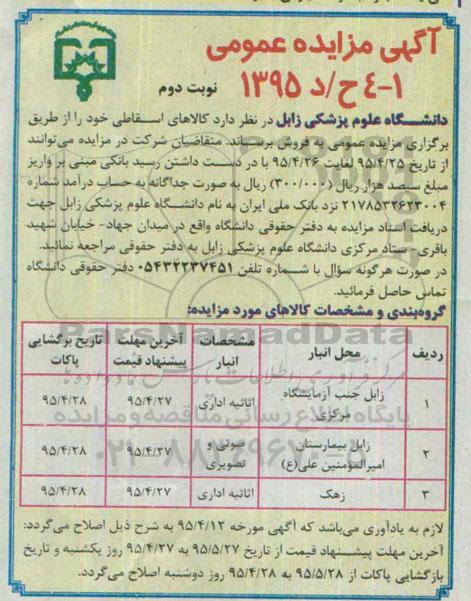 آگهی مزایده عمومی
۴-۱ح/د ۱۳۹۵
نوبت دوم
دانشگاه علوم پزشکی زابل در نظر دارد کالاهای اسقاطی خود را از طریق
برگزاری مزایده عمومی به فروش برساند. متقاضیان شرکت در مزایده می‌توانند
از تاریخ ۹۵/۴/۲۵ لغایت ۹۵/۴/۲۶ با در دست داشتن رسید بانکی مبنی بر واریز
مبلغ سیصد هزار ریال (۳۰۰/۰۰۰) ریال به صورت جداگانه به حساب درآمد شماره
۲۱۷۸۵۳۳۶۲۳۰۰۴ نزد بانک ملی ایران به نام دانشگاه علوم پزشکی زابل جهت
دریافت اسناد مزایده به دفتر حقوقی دانشگاه واقع در میدان جهاد- خیابان شهید
باقری- ستاد مرکزی دانشگاه علوم پزشکی زابل به دفتر حقوقی مراجعه نمائید.
در صورت هرگونه سؤال با شماره تلفن ۰۵۴۳۲۲۳۷۴۵۱ دفتر حقوقی دانشگاه
تماس حاصل فرمائید.
گروه‌بندی و مشخصات کالاهای مورد مزایده:
ردیف محل انبار مشخصات انبار آخرین مهلت پیشنهاد قیمت تاریخ برگشایی پاکات
۱ زابل جنب آزمایشگاه مرکزی اثاثیه اداری ۹۵/۴/۲۷ ۹۵/۴/۲۸
۲ زابل بیمارستان امیرالمؤمنین علی(ع) صوتی و تصویری ۹۵/۴/۲۷ ۹۵/۴/۲۸
۳ زهک اثاثیه اداری ۹۵/۴/۲۷ ۹۵/۴/۲۸
لازم به یادآوری می‌باشد که آگهی مورخه ۹۵/۴/۱۲ به شرح ذیل اصلاح می‌گردد:
آخرین مهلت پیشنهاد قیمت از تاریخ ۹۵/۵/۲۷ به ۹۵/۴/۲۷ روز یکشنبه و تاریخ
بازگشایی پاکات از ۹۵/۵/۲۸ به ۹۵/۴/۲۸ روز دوشنبه اصلاح می‌گردد.
ParsNamadData
پایگاه اطلاع رسانی مناقصه و مزایده